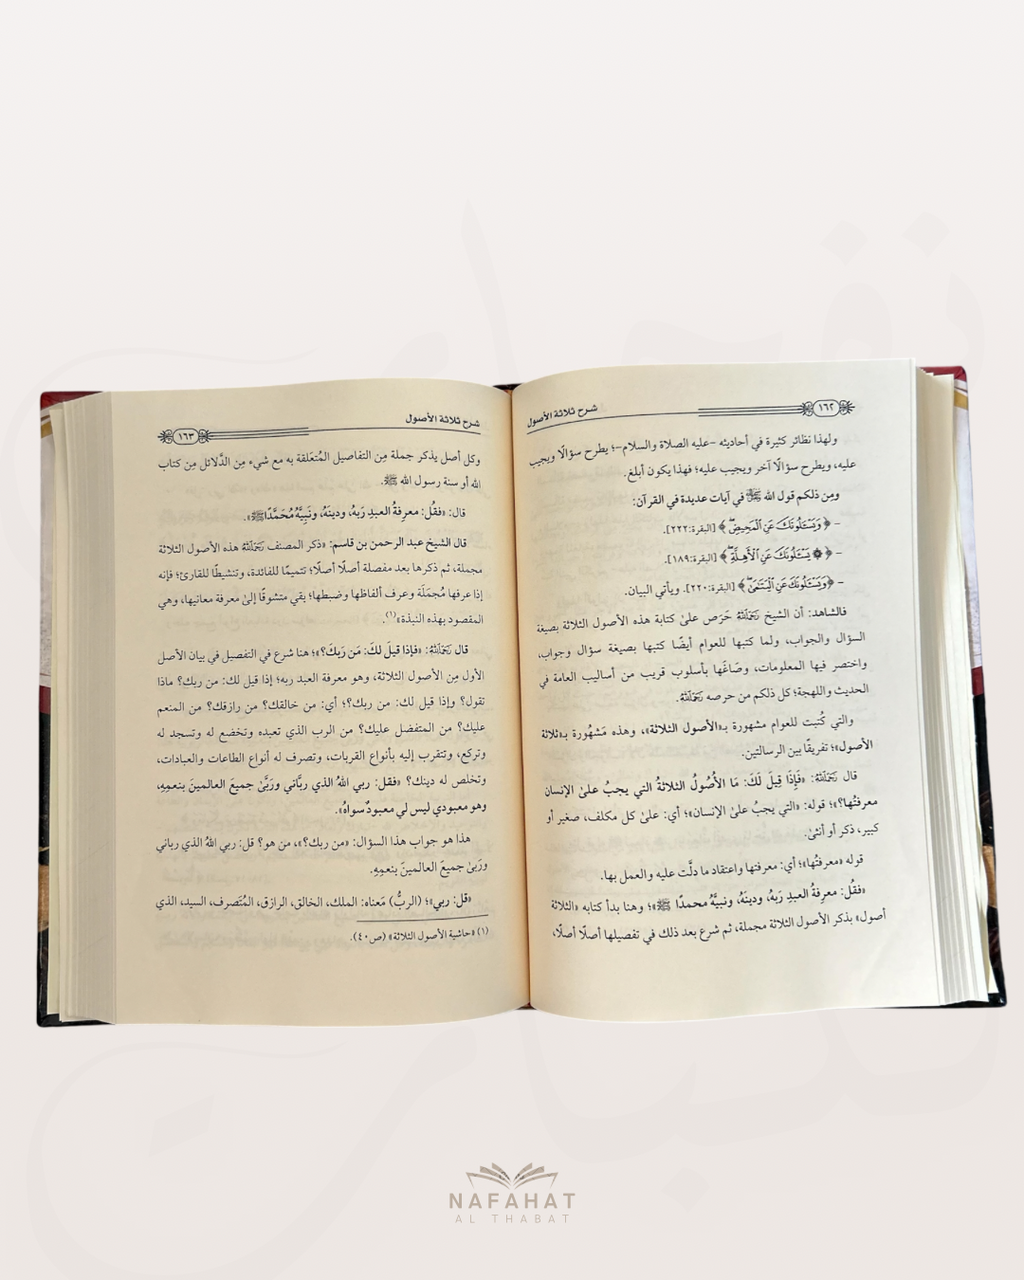 شرح ثلاثة الأصول
١٦٢
ولهذا نظائر كثيرة في أحاديثه -عليه الصلاة والسلام-؛ يطرح سؤالًا ويجيب
عليه، ويطرح سؤالًا آخر ويجيب عليه؛ فهذا يكون أبلغ.
ومِن ذلكم قول الله ﷻ في آيات عديدة في القرآن:
- ﴿وَيَسْـَٔلُونَكَ عَنِ ٱلْمَحِيضِ﴾ [البقرة:٢٢٢].
- ﴿۞ يَسْـَٔلُونَكَ عَنِ ٱلْأَهِلَّةِ﴾ [البقرة:١٨٩].
- ﴿وَيَسْـَٔلُونَكَ عَنِ ٱلْيَتَٰمَىٰ﴾ [البقرة:٢٢٠]. ويأتي البيان.
فالشاهد: أن الشيخ رَحِمَهُ ٱللَّهُ حَرَص علىٰ كتابة هذه الأصول الثلاثة بصيغة
السؤال والجواب، ولما كتبها للعوام أيضًا كتبها بصيغة سؤال وجواب،
واختصر فيها المعلومات، وصَاغَها بأسلوب قريب من أساليب العامة في
الحديث واللهجة؛ كل ذلكم من حرصه رَحِمَهُ ٱللَّهُ.
والتي كُتبت للعوام مشهورة بـ«الأصول الثلاثة»، وهذه مَشهُورة بـ«ثلاثة
الأصول»؛ تفريقًا بين الرسالتين.
قال رَحِمَهُ ٱللَّهُ: «فَإِذَا قِيلَ لَكَ: مَا الأُصُولُ الثلاثةُ التي يجبُ علىٰ الإنسان
معرفتُها؟»؛ قوله: «التي يجبُ علىٰ الإنسان»؛ أي: علىٰ كل مكلف، صغير أو
كبير، ذكر أو أنثىٰ.
قوله «معرفتُها»؛ أي: معرفتها واعتقاد ما دلَّت عليه والعمل بها.
«فقُل: معرفةُ العبدِ رَبهُ، ودينَهُ، ونبيَّهُ محمدًا ﷺ»؛ وهنا بدأ كتابه «الثلاثة
أصول» بذكر الأصول الثلاثة مجملة، ثم شرع بعد ذلك في تفصيلها أصلًا أصلًا،
شرح ثلاثة الأصول
١٦٣
وكل أصل يذكر جملة مِن التفاصيل المُتعَلقة به مع شيء مِن الدَّلائل مِن كتاب
الله أو سنة رسول الله ﷺ.
قال: «فقُل: معرِفةُ العبدِ رَبهُ، ودينَهُ، ونَبِيَّهُ مُحَمَّدًا ﷺ».
قال الشيخ عبد الرحمن بن قاسم: «ذكر المصنف رَحِمَهُ ٱللَّهُ هذه الأصول الثلاثة
مجملة، ثم ذكرها بعد مفصلة أصلًا أصلًا؛ تتميمًا للفائدة، وتنشيطًا للقارئ؛ فإنه
إذا عرفها مُجمَلَة وعرف ألفاظها وضبطها؛ يقي متشوقًا إلىٰ معرفة معانيها، وهي
المقصود بهذه النبذة»(١).
قال رَحِمَهُ ٱللَّهُ: «فإذا قيلَ لكَ: مَن رَبكَ؟»؛ هنا شرع في التفصيل في بيان الأصل
الأول مِن الأصول الثلاثة، وهو معرفة العبد ربه؛ إذا قيل لك: من ربك؟ ماذا
تقول؟ وإذا قيل لك: من ربك؟؛ أي: من خالقك؟ من رازقك؟ من المنعم
عليك؟ من المتفضل عليك؟ من الرب الذي تعبده وتخضع له وتسجد له
وتركع، وتتقرب إليه بأنواع القربات، وتصرف له أنواع الطاعات والعبادات،
وتخلص له دينك؟ «فقل: ربي اللهُ الذي ربَّاني ورَبَّىٰ جميعَ العالمينَ بنعمِهِ،
وهو معبودي ليس لي معبودٌ سواهُ».
هذا هو جواب هذا السؤال: «من ربك؟»، من هو؟ قل: ربي اللهُ الذي رباني
ورَبىٰ جميعَ العالمينَ بنعمِهِ.
«قل: ربي»؛ (الربُّ) مَعناه: الملك، الخالق، الرازق، المُتَصرف، السيد، الذي
(١) «حاشية الأصول الثلاثة» (ص٤٠).
NAFAHAT
AL THABAT